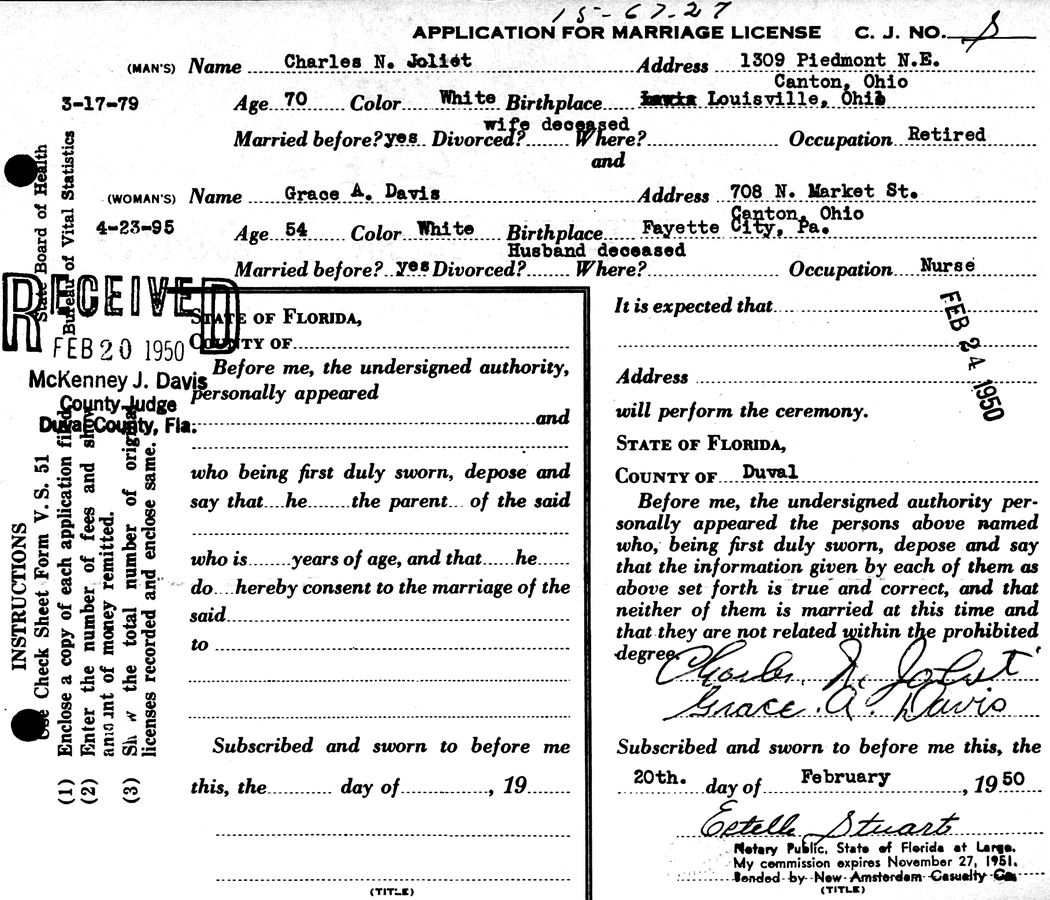 15-67-27
APPLICATION FOR MARRIAGE LICENSE C. J. NO.
(MAN'S) Name Charles N. Joliet Address 1309 Piedmont N.E.
Canton, Ohio
3-17-79 Age 70 Color White Birthplace Louisville, Ohio
wife deceased
Married before? yes Divorced? Where? Occupation Retired
and
(WOMAN'S) Name Grace A. Davis Address 708 N. Market St.
Canton, Ohio
4-23-95 Age 54 Color White Birthplace Fayette City, Pa.
Husband deceased
Married before? yes Divorced? Where? Occupation Nurse
State Board of Health
Bureau of Vital Statistics
RECEIVED
FEB 20 1950
McKenney J. Davis
County Judge
Duval County, Fla.
INSTRUCTIONS
Use Check Sheet Form V. S. 51
(1) Enclose a copy of each application filed
(2) Enter the number of fees and show
amount of money remitted.
(3) Show the total number of original
licenses recorded and enclose same.
STATE OF FLORIDA,
COUNTY OF
Before me, the undersigned authority,
personally appeared
and
who being first duly sworn, depose and
say that he the parent of the said
who is years of age, and that he
do hereby consent to the marriage of the
said
to
Subscribed and sworn to before me
this, the day of , 19
(TITLE)
It is expected that
FEB 24 1950
Address
will perform the ceremony.
STATE OF FLORIDA,
COUNTY OF Duval
Before me, the undersigned authority per-
sonally appeared the persons above named
who, being first duly sworn, depose and say
that the information given by each of them as
above set forth is true and correct, and that
neither of them is married at this time and
that they are not related within the prohibited
degree.
Charles N. Joliet
Grace A. Davis
Subscribed and sworn to before me this, the
20th. day of February , 19 50
Estelle Stuart
Notary Public, State of Florida at Large.
My commission expires November 27, 1951.
Bonded by New Amsterdam Casualty Co.
(TITLE)